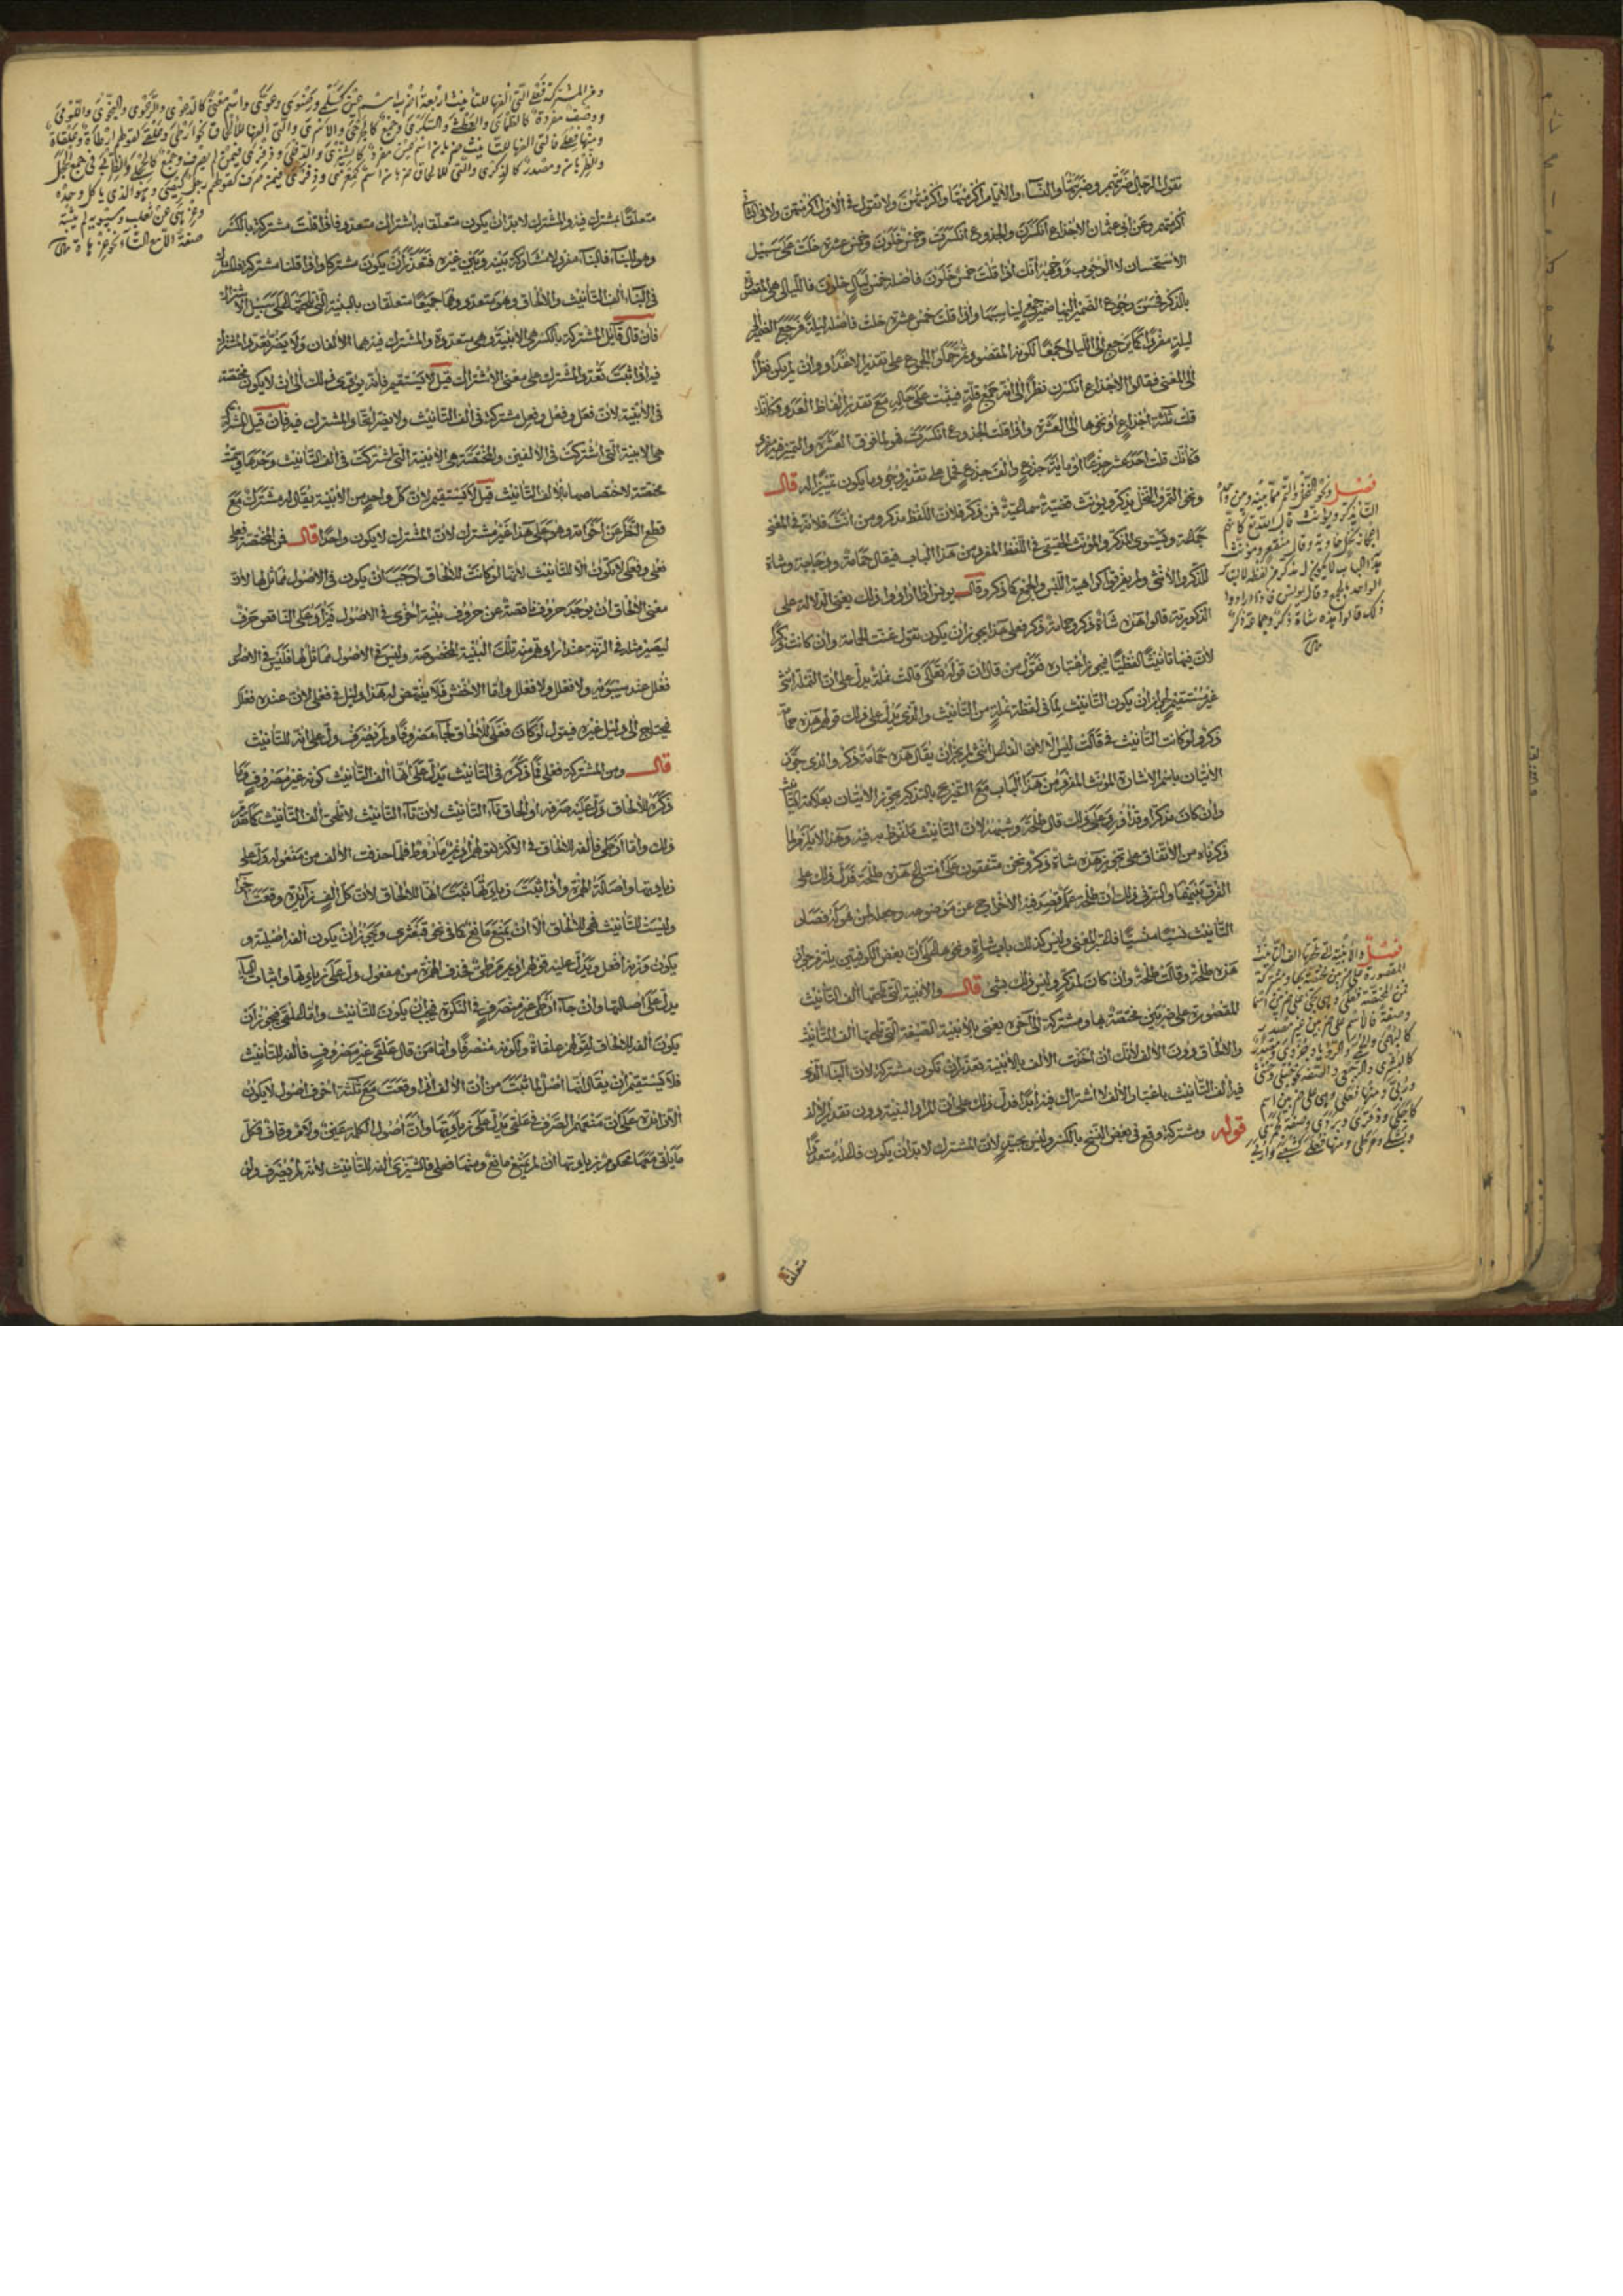 تقول الرجال ضربتهم وضربتها والنساء والايام اكرمتها واكرمتهن ولا تقول في الاول اكرمتهن ولا في الثاني
اكرمتهم وعن ابي عثمان الاجذاع انكسرن والجذوع انكسرت وخمس خلون وخمس عشرة خلت على سبيل
الاستحسان لا الوجوب ووجهه انك اذا قلت خمس خلون فاصله خمس ليال خلون فالليالي هي المقصودة
بالذكر فحسن رجوع الضمير اليها ضمير جمع واذا قلت خمس عشرة خلت فاصله ليلة فرجع الضمير الى
ليلة مفردا كما يرجع الى الليالي جمعا لكونه المقصود
الى المعنى فقالوا الاجذاع انكسرن نظرا الى انه جمع قلة فيثبت على حاله مع تقدير الفاظ العدد فكانك
قلت ثلثة اجذاع او نحوها الى العشرة واذا قلت الجذوع انكسرت فهو لما فوق العشرة والتمييز فيه مفرد
فكانك قلت احد عشر جذعا او مائة جذع والف جذع فحمل على تقدير وجوه ما يكون تمييزا له قال
ونحو التمر والنخل يذكر ويؤنث قضية سماعية فمن ذكر فلان اللفظ مذكر ومن انث فلانه في المعنى
جماعة ويستوي المذكر والمؤنث الحقيقي في اللفظ المفرد من هذا الباب فيقال حمامة ودجاجة وشاة
للذكر والانثى ولم يفرقوا كراهية اللبس والجمع كما ذكر وقال يونس اذا ارادوا ذلك يعني الدلالة على
الذكورية قالوا هذه شاة ذكر وحمامة ذكر فعلى هذا يجوز ان يكون تقول غنت الحمامة وان كانت ذكرا
لان فيها تانيثا لفظيا فيجوز اعتباره فقول من قال ان قوله تعالى قالت نملة يدل على ان النملة انثى
غير مستقيم لجواز ان يكون التانيث لما في لفظة نملة من التانيث والذي يدل على ذلك قولهم هذه حمامة
ذكر ولو كانت التانيث في قالت ليس الا لان الفاعل انثى لم يجز ان يقال هذه حمامة ذكر والذي جوز
الاتيان باسم الاشارة المؤنث المفرد من هذا الباب مع التصريح بالتذكير يجوز الاتيان بعلامة التانيث
وان كان مذكرا وقد اورد على ذلك قال طلحة وشبهه لان التانيث ملفوظ به فيه وهذا لا يلزم لما
ذكرناه من الاتفاق على تجويز هذه شاة ذكر ونحن متفقون على امتناع هذه طلحة فدل ذلك على
الفرق بينهما والسر في ذلك ان طلحة علم قصد فيه الاخراج عن موضوعه وجعله لمن هو له فصار
التانيث نسيا منسيا فاعتبر المعنى وليس كذلك باب شاة ونحوها على ان بعض الكوفيين يلتزم جواز
هذه طلحة وقالت طلحة وان كان لمذكر وليس ذلك بشيء قال والابنية التي تلحقها الف التانيث
المقصورة على ضربين مختصة بها ومشتركة الى آخره يعني بالابنية الصيغة التي تلحقها الف التانيث
والالحاق دون الالف لانك ان اخذت الالف بالابنية تعذر ان تكون مشتركة لان البناء الذي
فيه الف التانيث باعتبار الالف لا اشتراك فيه ابدا فدل ذلك على ان المراد البنية دون تقدير الالف
قوله ومشتركة وقع في بعض النسخ بالكسر وليس بجيد لان المشترك لا بد ان يكون فاعله متعددا
متعلقا
فصل ونحو النخل والتمر مما بينه وبين واحده
التاء يذكر ويؤنث قال الله تعالى كانهم
اعجاز نخل خاوية وقال منقعر ومؤنث
هذا الباب لا يكون له مذكر من لفظه لالتباس
الواحد بالجمع وقال يونس فاذا ارادوا
ذلك قالوا هذه شاة ذكر وحمامة ذكر
فصل والابنية التي تلحقها الف التانيث
المقصورة على ضربين مختصة بها ومشتركة
فمن المختصة فعلى وهي تجيء على ضربين اسما
وصفة فالاسم على ضربين غير مصدر
كالبهمى والحمى والرؤيا وحزوى ومصدر
كالبشرى والرجعى والصفة نحو حبلى وخنثى
وربى ومنها فعلى وهي على ضربين اسم
كاجلى ودقرى وبردى وصفة كجمزى
وبشكى ومرطى ومنها فعلى كشعبى واربى
ومن المشتركة فعلى فالتي الفها للتانيث اربعة اضرب اسم عين كسلمى ورضوى وعوى واسم معنى كالدعوى والرعوى والنجوى واللومى
ووصف مفرد كالظمأى والعطشى والسكرى وجمع كالجرحى والاسرى والتي الفها للالحاق نحو ارطى وعلقى لقولهم ارطاة وعلقاة
ومنها فعلى فالتي الفها للتانيث ضربان اسم عين مفرد كالشيزى والدفلى وذفرى فيمن لم يصرف وجمع كالحجلى والظربى في جمع الحجل
والظربان ومصدر كالذكرى والتي للالحاق ضربان اسم كمعزى وذفرى فيمن صرف كقولهم رجل كيصى وهو الذي ياكل وحده
وعزهى عن ثعلب وسيبويه لم يثبته
صفة الا مع التاء نحو عزهاة
متعلقا يشترك فيه والمشترك لا بد ان يكون متعلقا به اشتراك متعدد فاذا قلت مشتركة بالكسر
وهو للبناء فالبناء مفرد لا مشاركة بينه وبين غيره فتعذر ان يكون مشتركا واذا قلنا مشتركة بفلك
في البناء الف التانيث والالحاق وهو متعدد وهما جميعا متعلقان بالبنية التي تلحقها على سبيل الاشتراك
فان قال قائل المشتركة بالكسر هي الابنية وهي متعددة والمشترك فيه هما الالفان ولا يضر تعدد المشترك
فيه اذا ثبت تعدد المشترك على معنى الاشتراك قيل لا يستقيم فانه يؤدي ذلك الى ان لا يكون مختصة
في الابنية لان فعل وفعل وفعل مشتركة في الف التانيث ولا يضر اتحاد المشترك فيه فان قيل المشتركة
هي الابنية التي اشتركت في الالفين والمختصة هي الابنية التي اشتركت في الف التانيث وحدها
مختصة لاختصاصها بالف التانيث قيل لا يستقيم لان كل واحد من الابنية يقال له مشترك مع
قطع النظر عن اخواته وهو على هذا غير مشترك لان المشترك لا يكون واحدا قال فمن المختصة فعلى
فعلى وفعلى لا يكون الا للتانيث لانها لو كانت للالحاق لوجب ان يكون في الاصول مماثل لها لان
معنى الالحاق ان يوجد حروف ناقصة عن حروف بنية اخرى في الاصول فيزاد على الناقص حرف
ليصير مثله في الزنة عند ارادتهم منه تلك البنية المخصوصة وليس في الاصول مماثل لها فليس في الاصول
فعلل عند سيبويه ولا فعلل ولا فعلل واما الاخفش فلا ينهض له هذا دليل في فعلى لان عنده فعلل
فيحتاج الى دليل غيره فيقول لو كان فعلى للالحاق لجاء مصروفا ولم يصرف دل على انه للتانيث
قال ومن المشتركة فعلى فما ذكره في التانيث يدل على انها الف التانيث كونه غير مصروف وما
ذكره للالحاق دل عليه صرفه او الحاق تاء التانيث لان تاء التانيث لا تلحق الف التانيث كما تقدم
ذلك واما ارطى فالفه للالحاق في الاكثر لقولهم اديم ماروط فلما حذفت الالف من مفعوله دل على
زيادتها واصالة الهمزة واذا ثبت زيادتها ثبت انها للالحاق لان كل الف زائدة وقعت آخرا
وليست للتانيث فهي للالحاق الا ان يمنع مانع كما في نحو قبعثرى ويجوز ان يكون الفه اصلية و
يكون وزنه افعل ويدل عليه قولهم اديم مرطي فحذف الهمزة من مفعول دل على زيادتها واثبات الياء
يدل على اصالتها وان جاء ارطى غير منصرف في النكرة فيجب ان يكون للتانيث واما علقى فيجوز ان
يكون الفه للالحاق لقولهم علقاة ولكونه منصرفا واما من قال علقى غير مصروف فالفه للتانيث
فلا يستقيم ان يقال انها اصل لما ثبت من ان الالف اذا وقعت مع ثلثة احرف اصول لا يكون
الا زائدة على ان منعهم الصرف في علقى يدل على زيادتها وان اصول الكلمة عين ولام وقاف فكل
ما ياتي معها محكوم بزيادتها ان لم يمنع مانع ومنها فعلى فالشيزى الفه للتانيث لانه لم يصرف وان